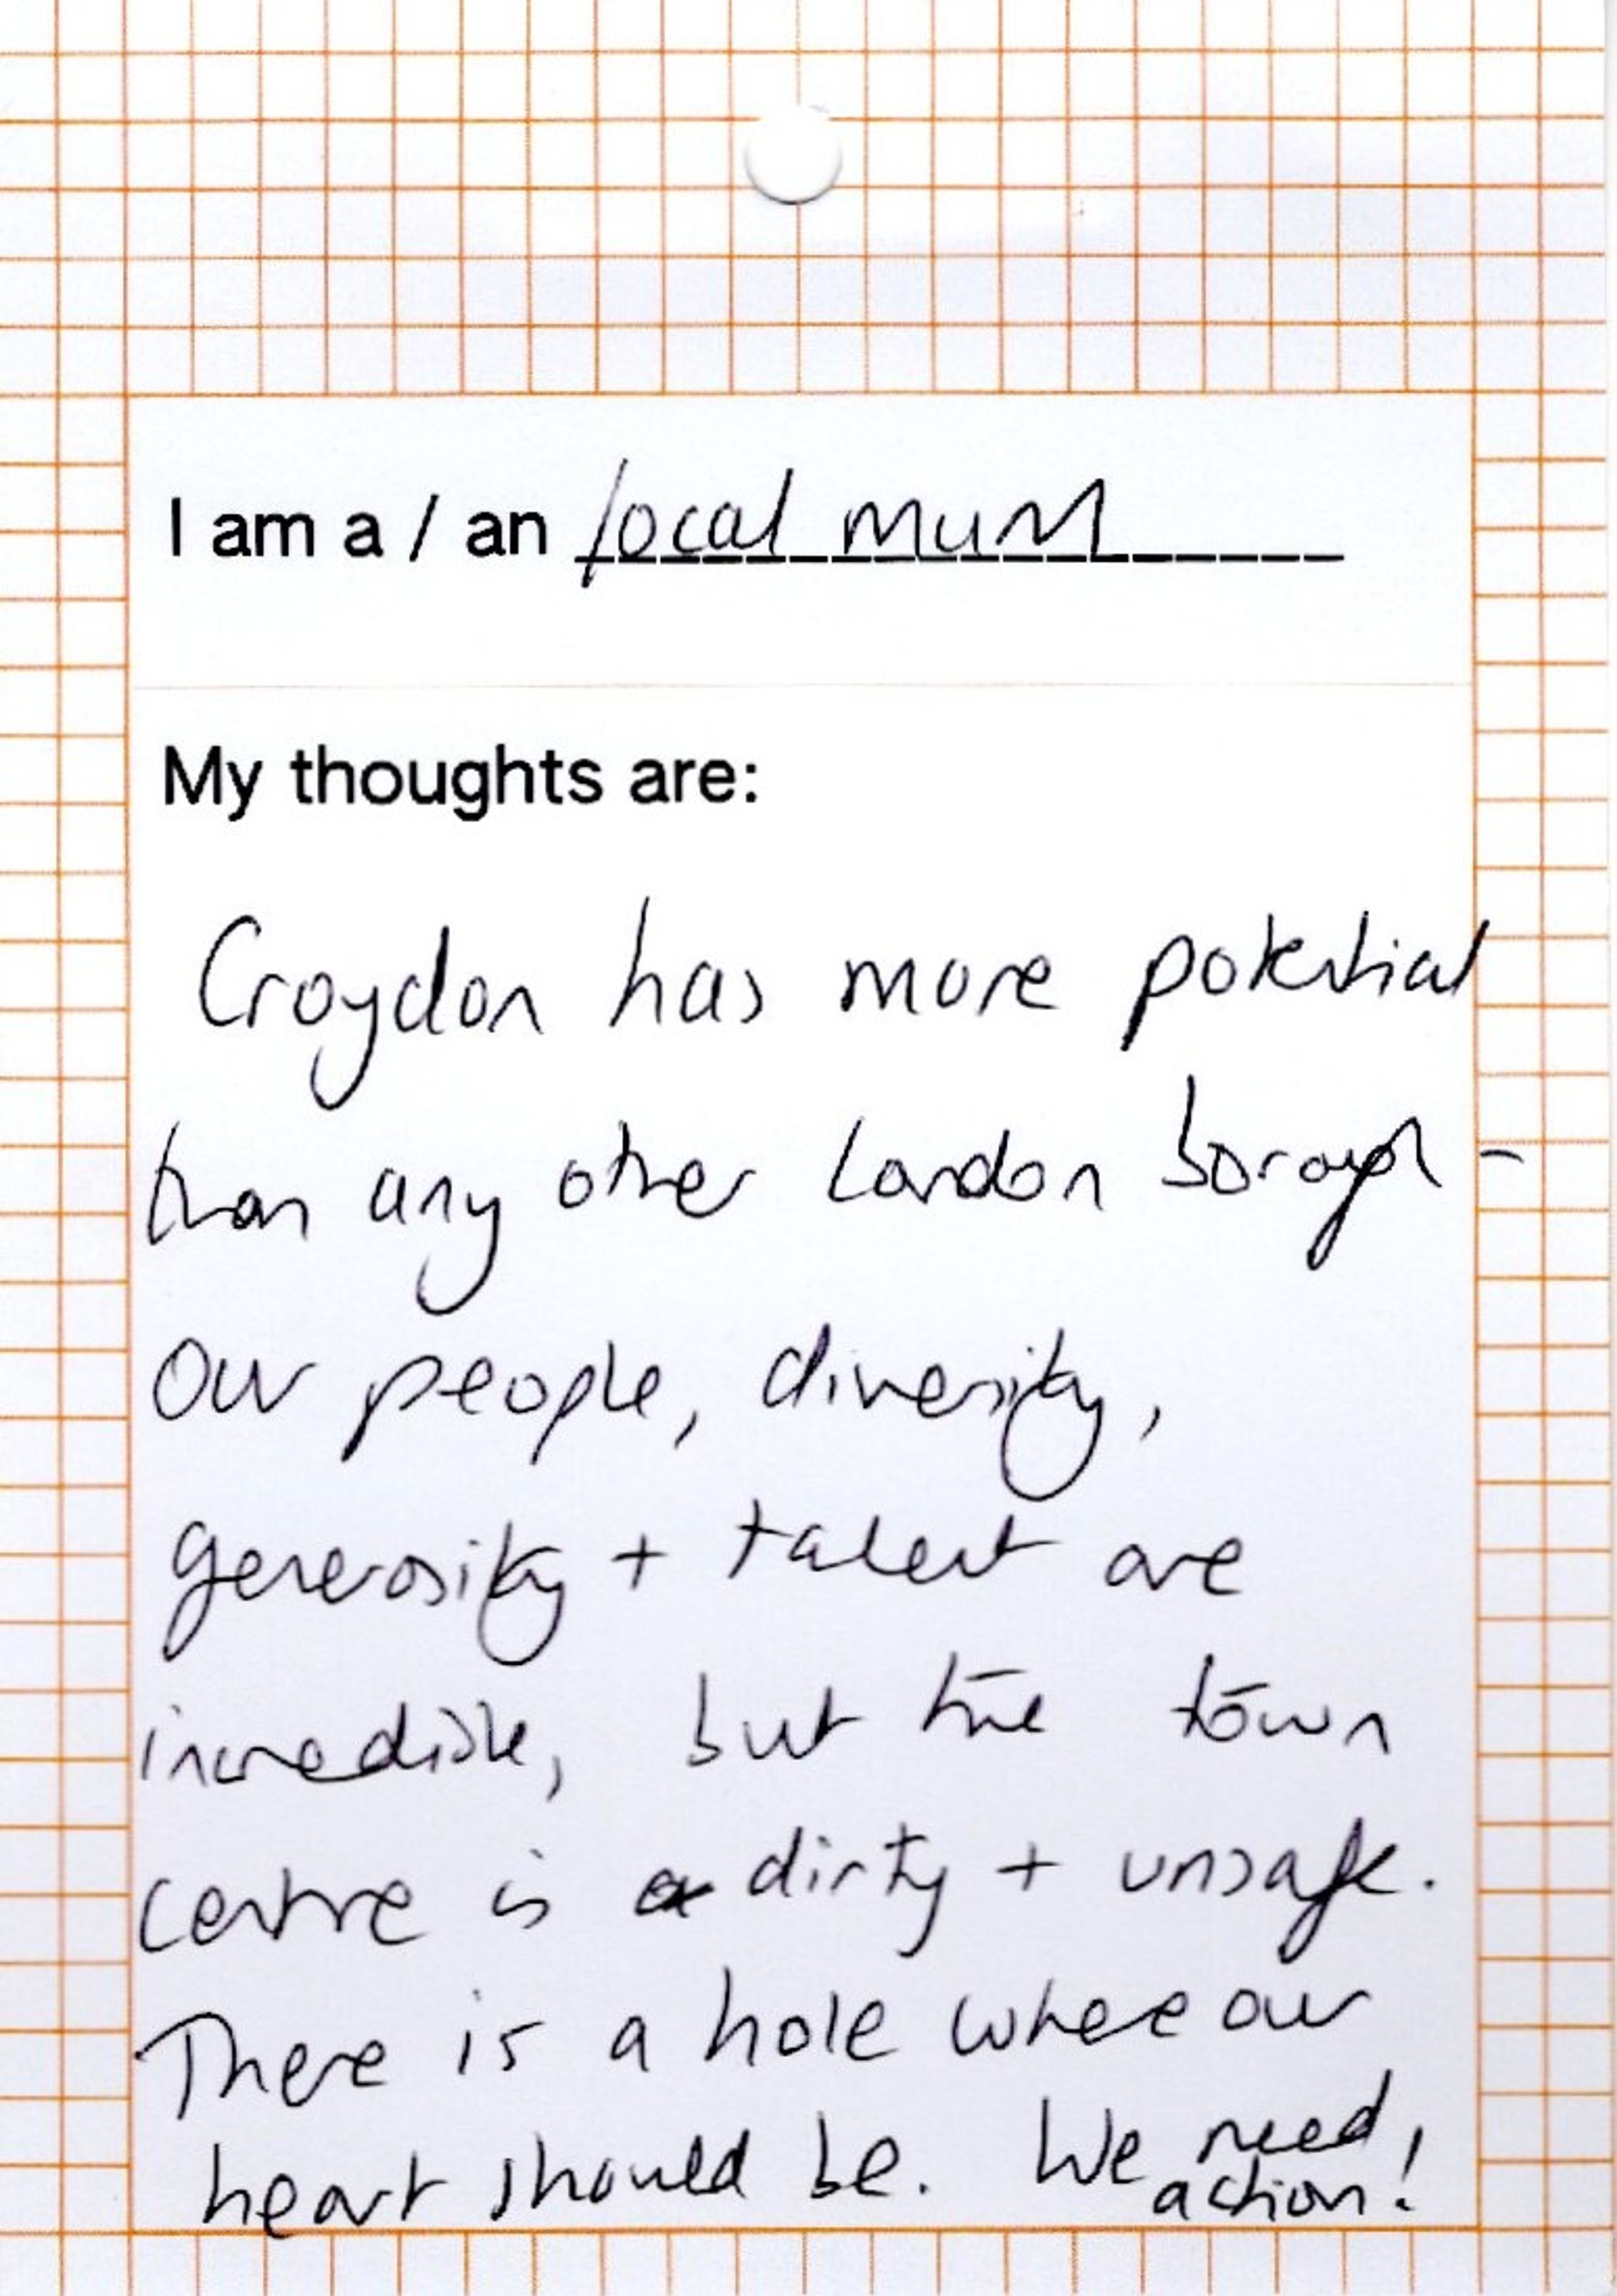 I am a / an local mum
My thoughts are:
Croydon has more potential
than any other London borough -
our people, diversity,
generosity + talent are
incredible, but the town
centre is dirty + unsafe.
There is a hole where our
heart should be. We need
action!